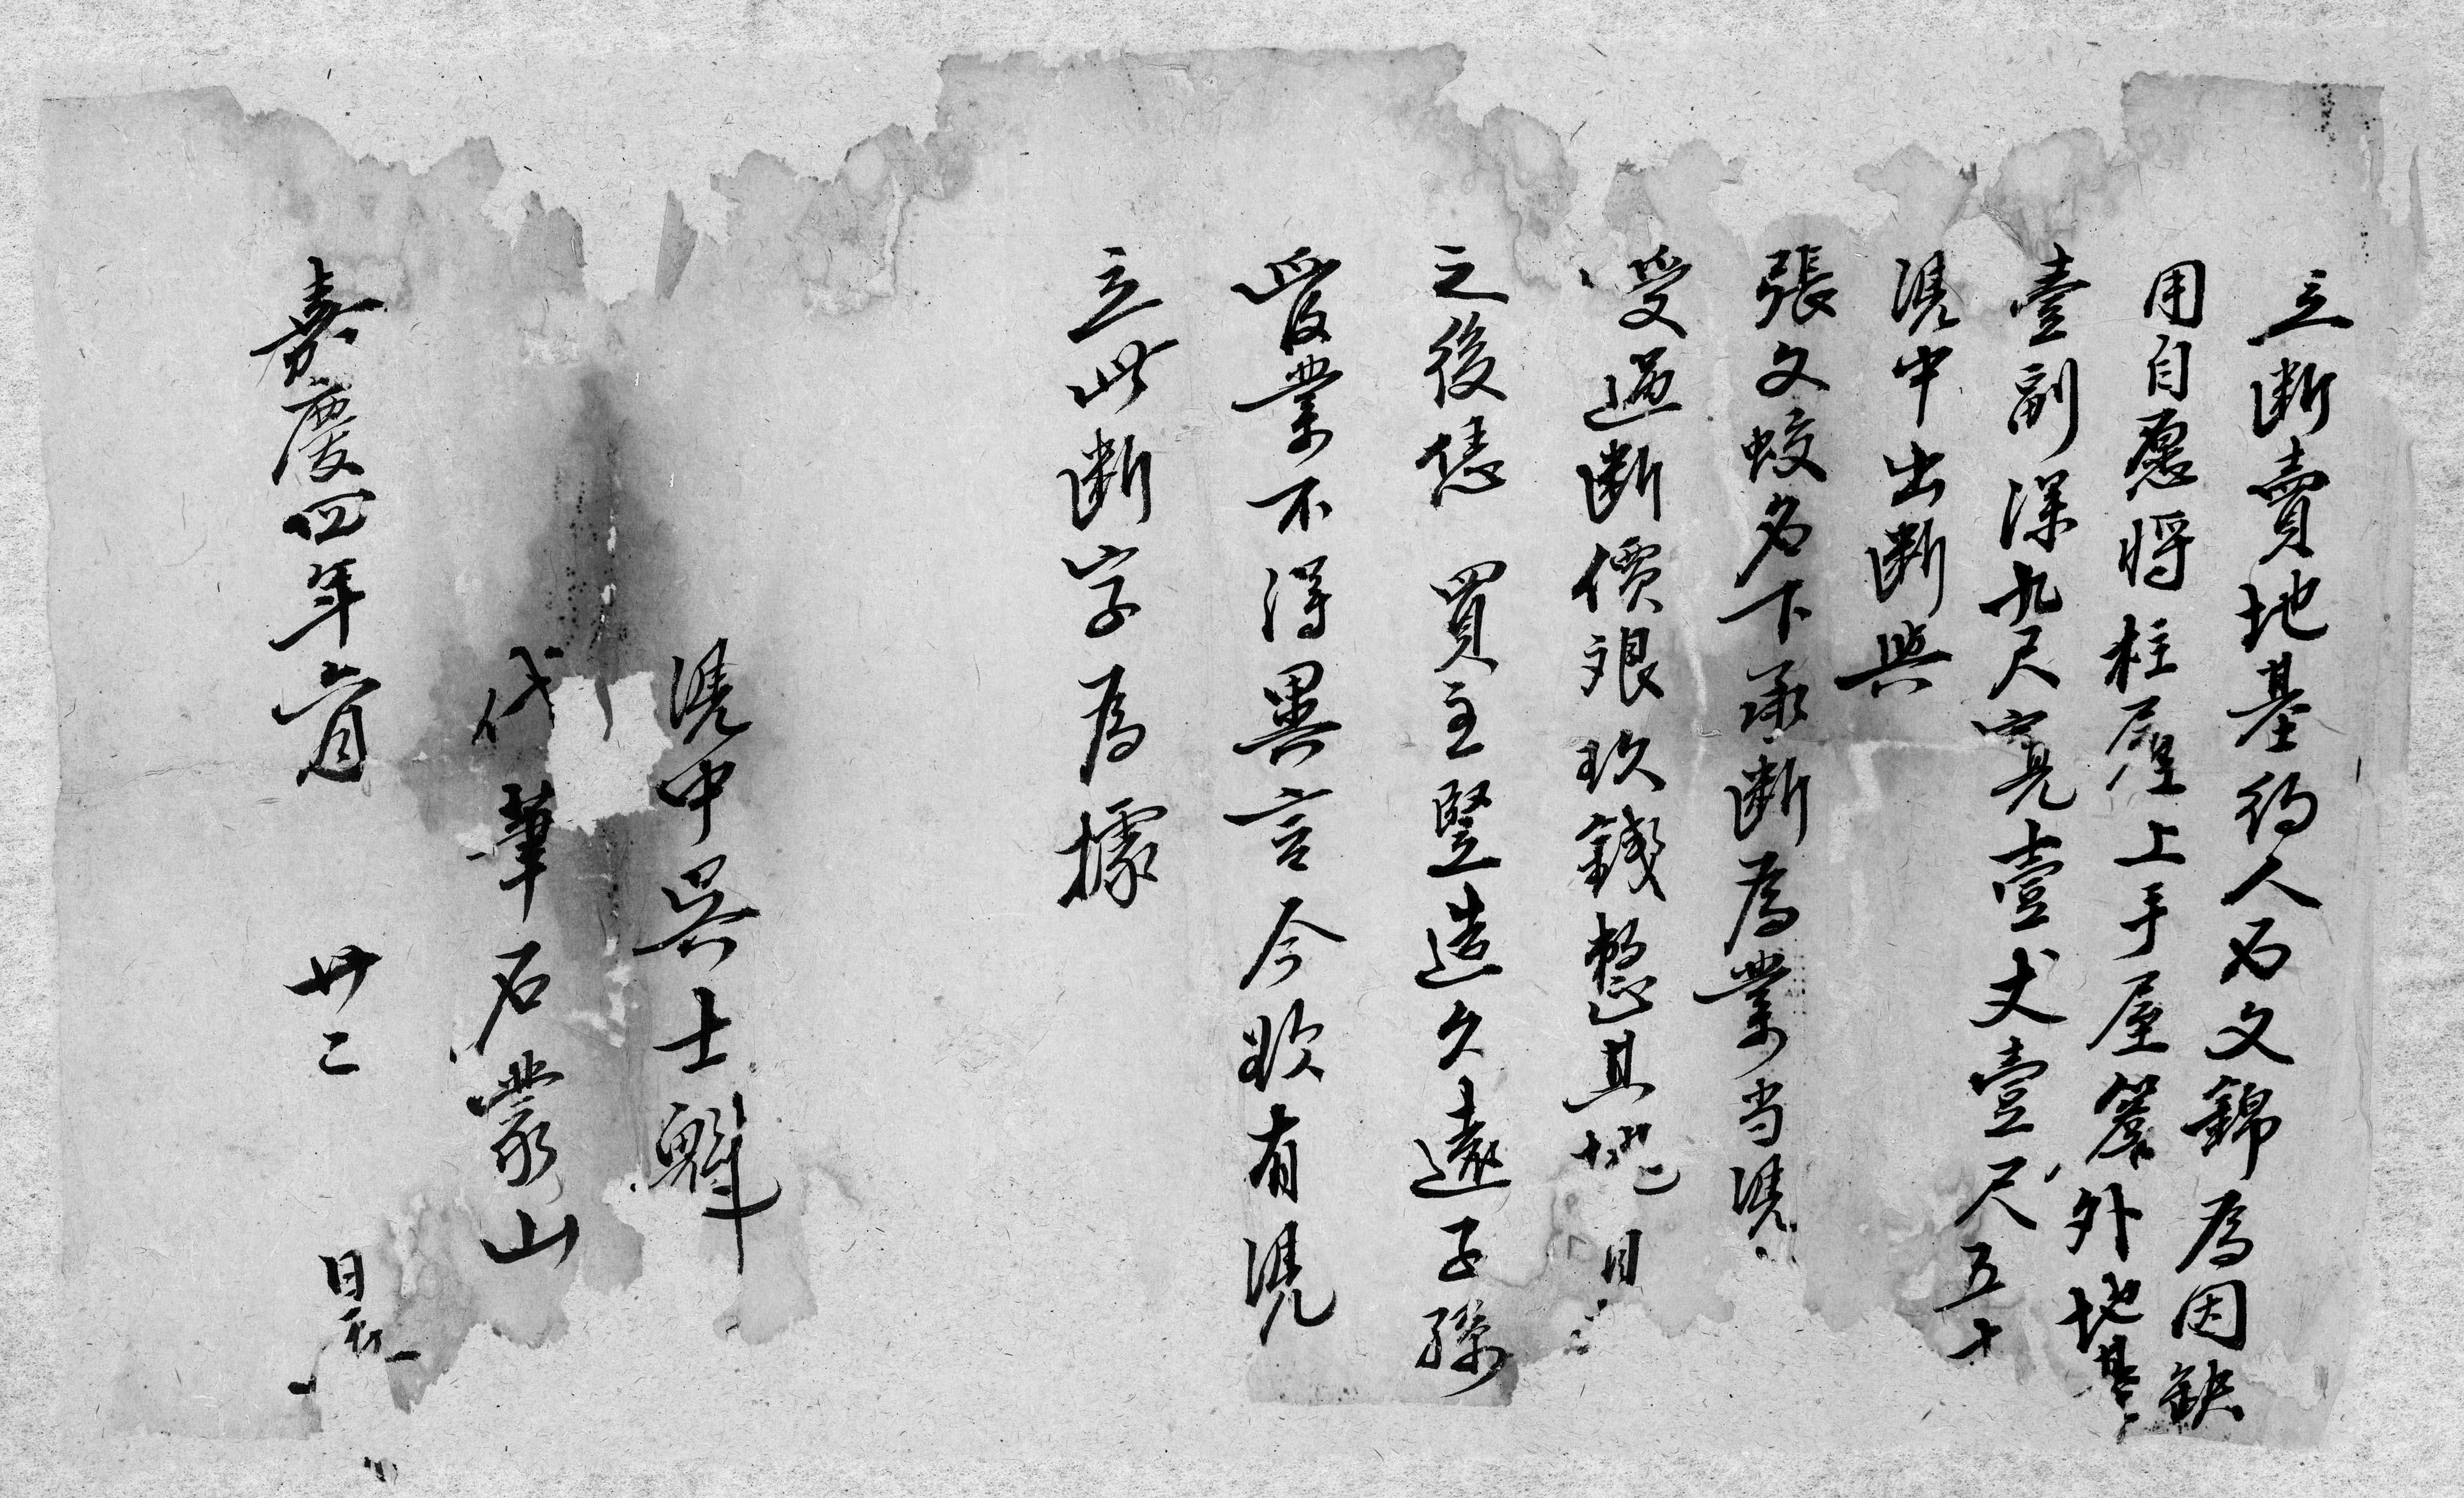 立断賣地基約人石文錦為因缺
用自愿将柱屋上手屋簷外地基
壹副深九尺寬壹丈壹尺五寸
凴中出断與
張文蛟名下承断為業当凴
受過断價艮玖錢整其地自
之後恁買主竪造久遠子孫
管業不得異言今欲有凴
立此断字為據
凴中吳士魁
代筆石蒙山
嘉慶四年六月廿二日立